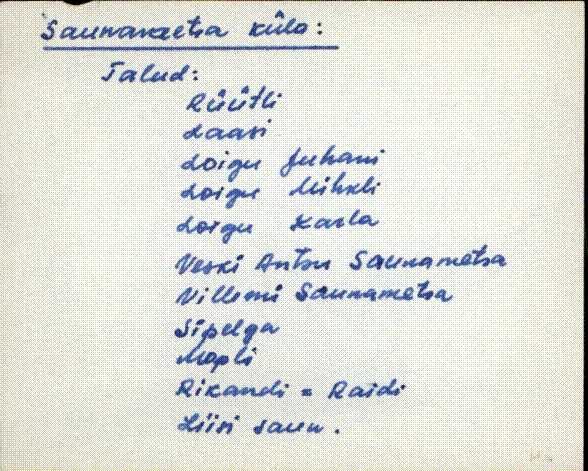 Saunametsa küla:
Talud:
Rüütli
Laasi
Loigu Juhani
Loigu Mihkli
Loigu Karla
Veski Antsu Saunametsa
Villemi Saunametsa
Sipelga
Mapli
Rikandi = Raidi
Liisi saun.